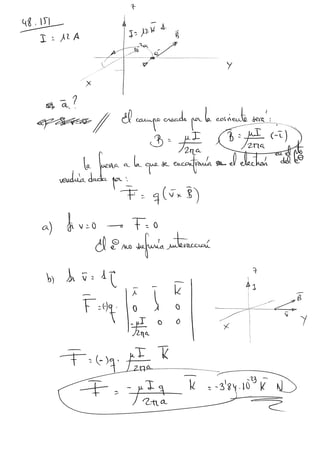 48.151
I = 12 A
z
I = 12 k A
B
y
x
ā?
El campo creado por la corriente será:
B = μI / 2πa
B = μI / 2πa (-i) en el pto del e⊖
la fuerza a la que se encontraría el electrón
vendría dada por:
F = q (v × B)
a) Si v=0 → F = 0
El e⊖ no sufriría interacción
b) Si v = 1 j
z
i j k
F = (-)q · 0 1 0
-μI/2πa 0 0
B
x
y
F = (-)q · μI / 2πa k
F = - μ I q / 2πa k = -3'84·10⁻²³ k N